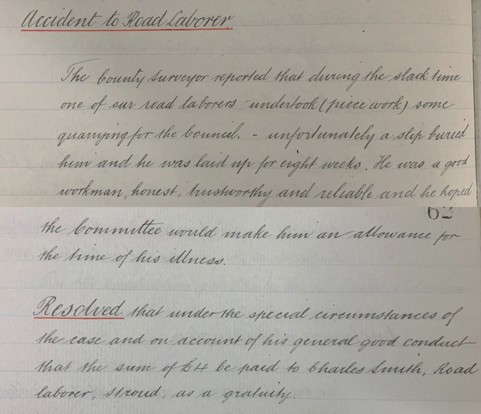 Accident to Road Laborer
The County Surveyor reported that during the slack time
one of our road laborers undertook (piece work) some
quarrying for the Council. - unfortunately a slip buried
him and he was laid up for eight weeks. He was a good
workman, honest, trustworthy and reliable and he hoped
62
the Committee would make him an allowance for
the time of his illness.
Resolved that under the special circumstances of
the case and on account of his general good conduct
that the sum of £4 be paid to Charles Smith, Road
laborer, Stroud, as a gratuity.